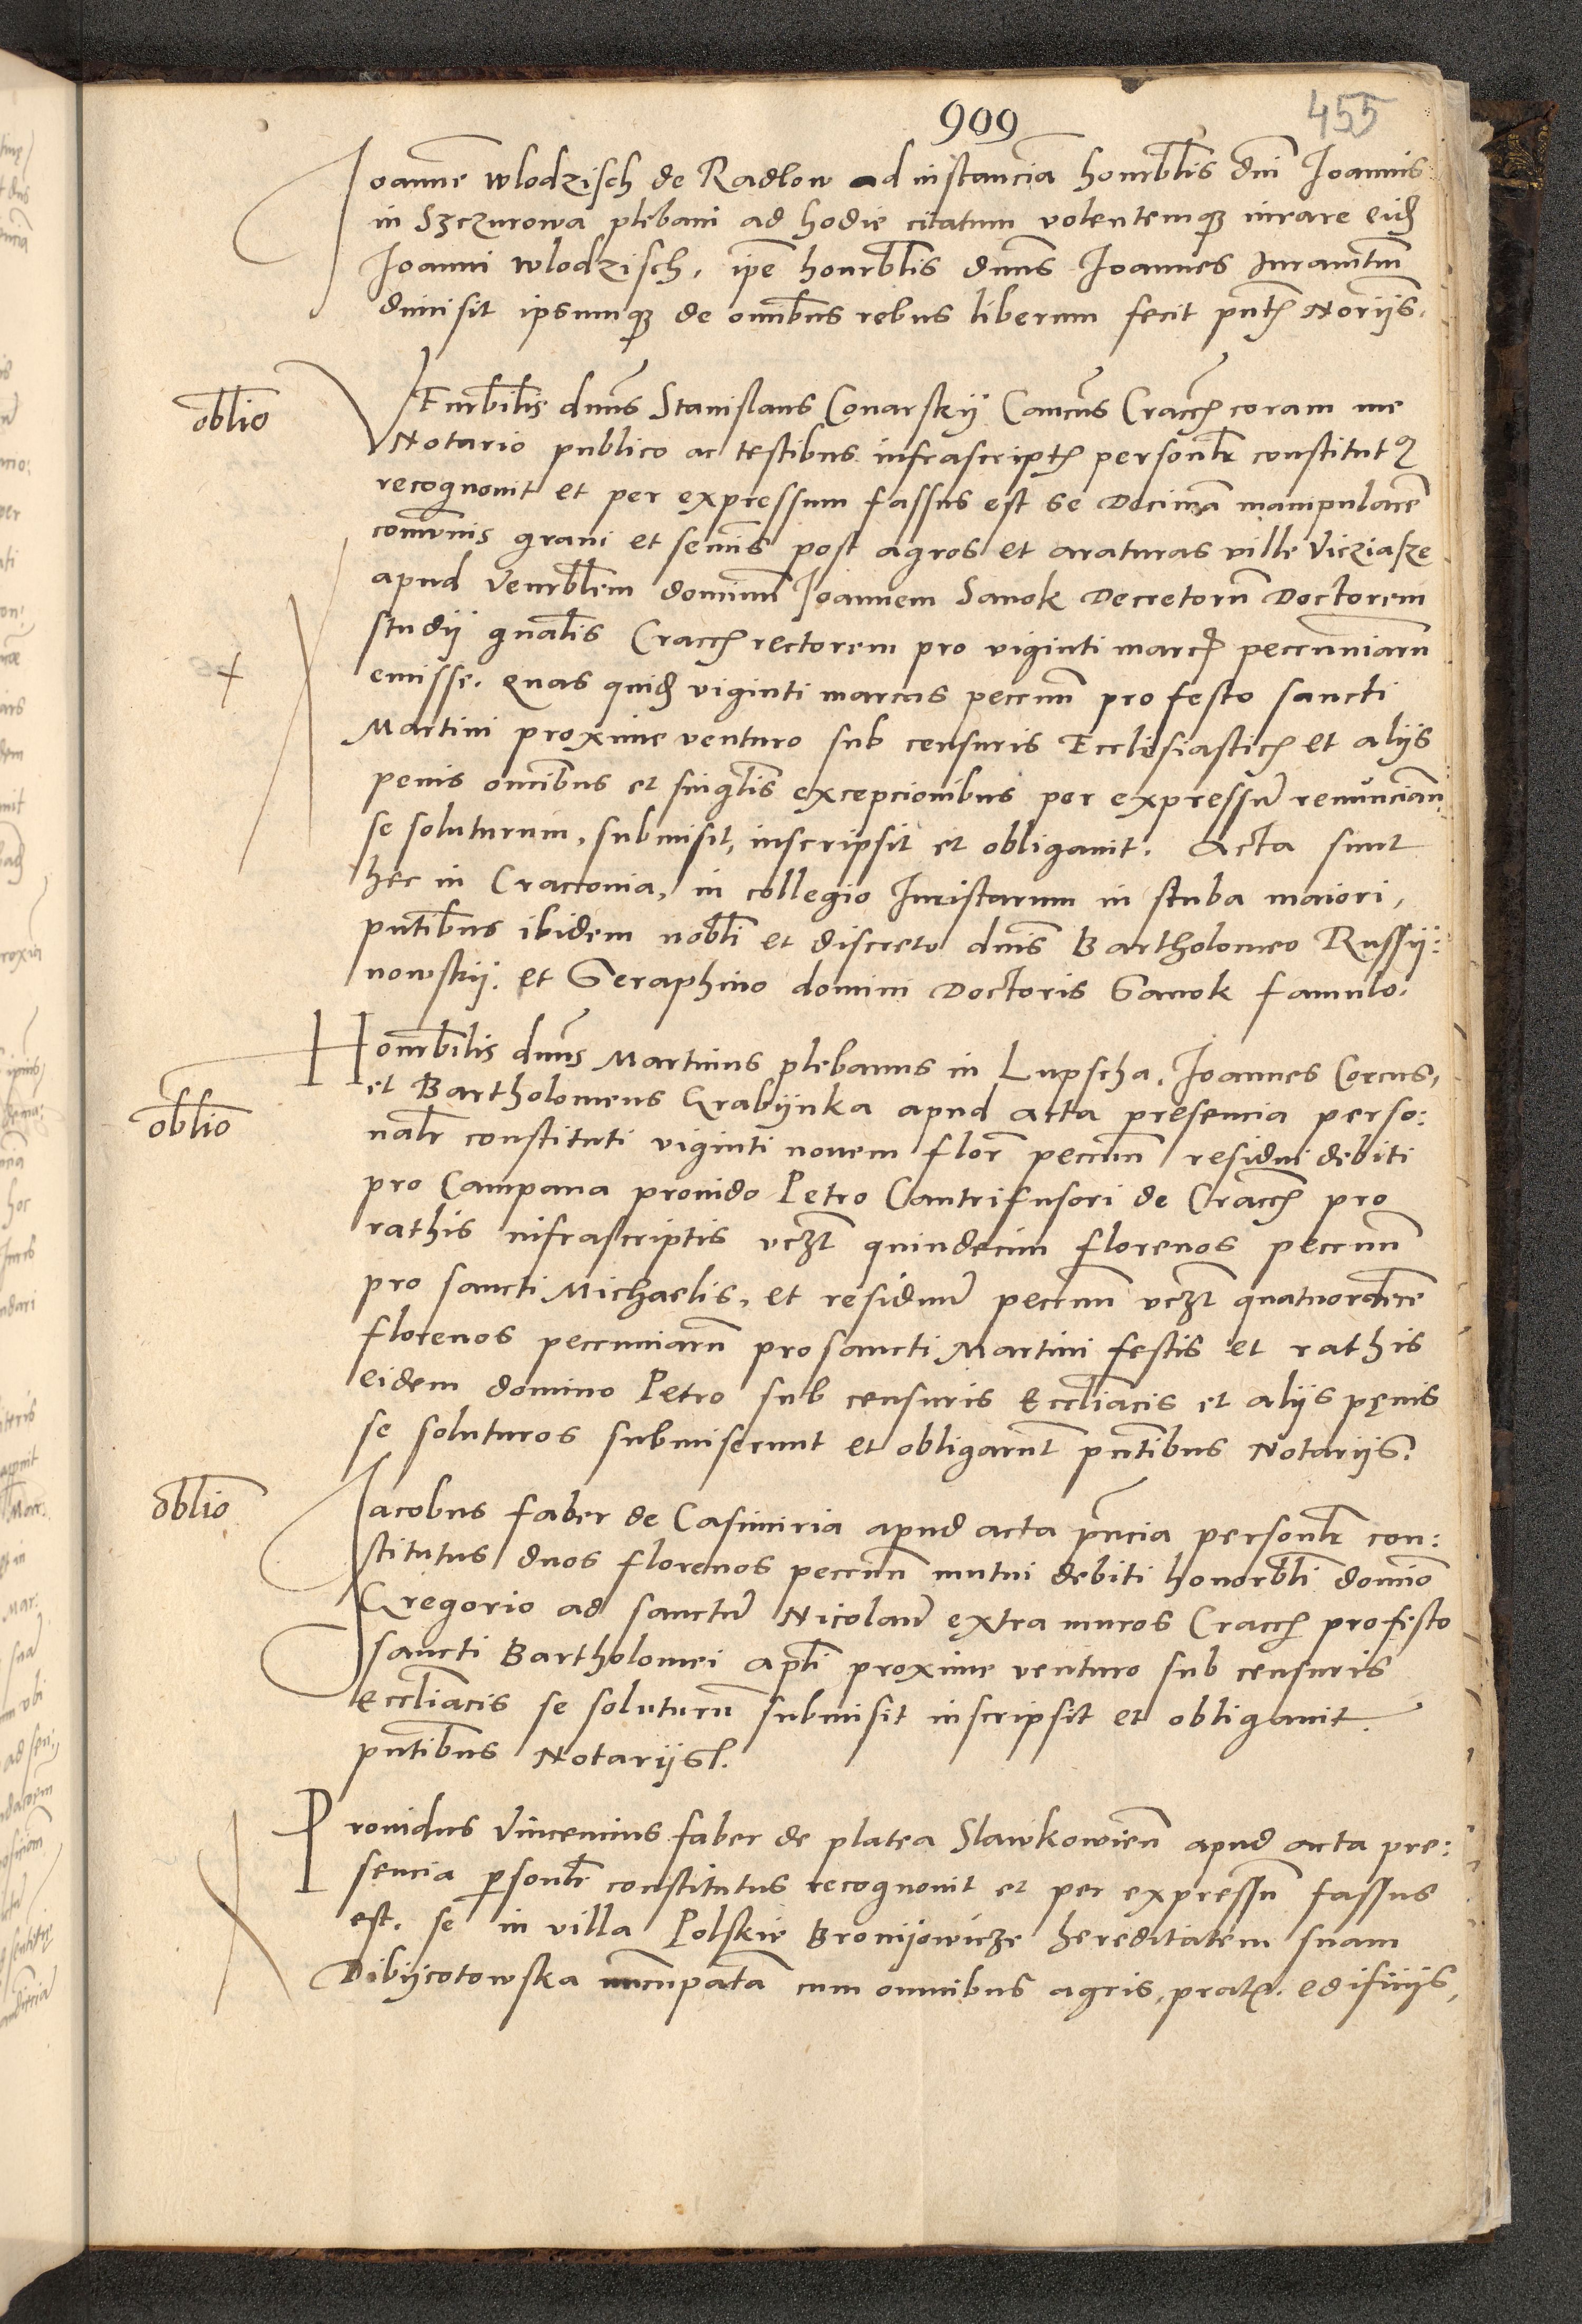 909
455
Joannẽ wlodzisch de Radlow ad instanciã honorblis dni Joannis
in Szczurowa plebani ad hodie citatum volentemqz iurare eidẽ
Joanni wlodzisch, ipẽ honrblis dnns Joannes Juramẽtũ
dimisit ipsumqz de omnibus rebus liberum fecit pntẽ Norijs.
oblio
VEnrbilis dnns Stanislaus Conarskij Cancus Craccẽ coram me
Notario publico ac testibus infrascriptẽ personlr constitutq
recognouit et per expressum fassus est se Decimã manipularẽ
comunis grani et semis post agros et araturas ville Vicziasze
apud Venrblem dominũ Joannem Sanok Decretorũ Doctorem
studij gnalis Craccẽ rectorem pro viginti marcẽ peccuniarũ
emisse. quas quidẽ viginti marcas peccun̄ pro festo sancti
Martini proxime venturo sub censuris Ecclesiasticẽ et alijs
penis omibus et singlis excepcionibus per expressũ renũncian̄
se soluturum, submisit, inscripsit et obligauit. Acta sunt
hec in Cracconia, in collegio Juristarum in stuba maiori,
pntibus ibidem nobli et discreto dnis Bartholomeo Russij:
nowskij. et Seraphino domini Doctoris Sanok famulo.
Honrbilis dnns Martinus plebanus in Lupscha, Joannes Corcus,
et Bartholomeus Grabijnka apud acta presencia perso:
oblio
nalr constituti viginti nouem flor̄ peccun̄ residui debiti
pro Campana prouido Petro Cantrifusori de Craccẽ pro
rathis infrascriptis vczt quindecim florenos peccun̄
pro sancti Michaelis, et residuũ peccun̄ vczt quatuordecẽ
florenos peccuniarũ pro sancti Martini festis et rathis
eidem domino Petro sub censuris Eccliacis et alijs pęnis
se soluturos submiserunt et obligarũt pntibus Notarijs.
oblio
Jacobus faber de Casimiria apud acta pñcia personlr con:
stitutus duos florenos peccun̄ mutui debiti honorbli domio
Gregorio ad sanctũ Nicolaũ extra muros Craccẽ pro festo
sancti Bartholomei apli proxime venturo sub censuris
Eccliacis se soluturũ submisit inscripsit et obligauit
pntibus Notarijs.
Prouidus Vincencius faber de platea Slawkowien̄ apud acta pre:
sencia personlr constitutus recognouit et per expressũ fassus
est. se in villa Polskie Bronijowicze hereditatem suam
Dibijcotowska nuncupatã cum omnibus agris, pratẽ. edificijs,